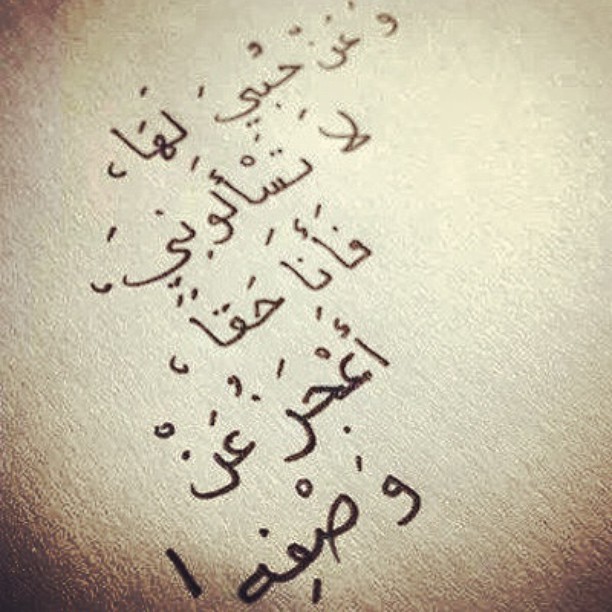 وَ عَنْ حُبِّيَ لَهَا،
لَا تَسْأَلُونِيَ،
فَأَنَا حَقاً،
أَعْجَزُ عَنْ
وَصْفِه !